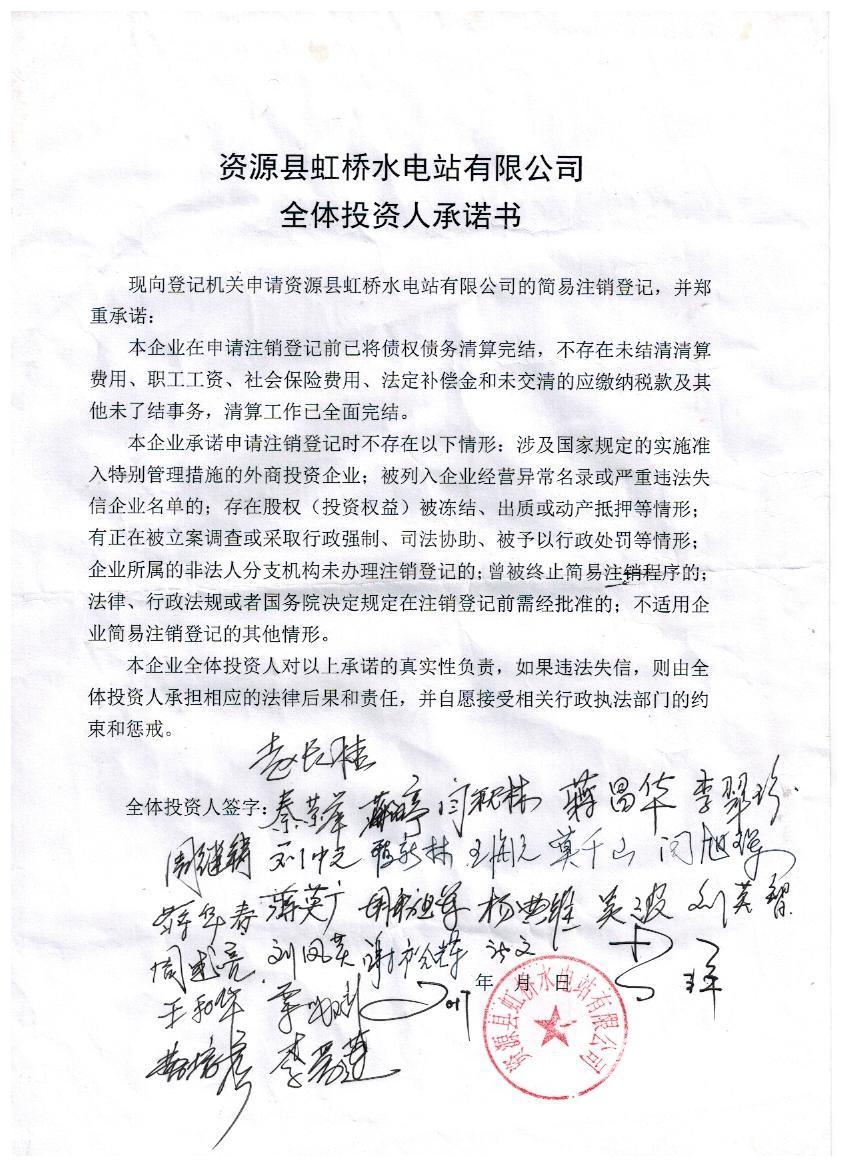 资源县虹桥水电站有限公司
全体投资人承诺书
现向登记机关申请资源县虹桥水电站有限公司的简易注销登记，并郑
重承诺：
本企业在申请注销登记前已将债权债务清算完结，不存在未结清清算
费用、职工工资、社会保险费用、法定补偿金和未交清的应缴纳税款及其
他未了结事务，清算工作已全面完结。
本企业承诺申请注销登记时不存在以下情形：涉及国家规定的实施准
入特别管理措施的外商投资企业；被列入企业经营异常名录或严重违法失
信企业名单的；存在股权（投资权益）被冻结、出质或动产抵押等情形；
有正在被立案调查或采取行政强制、司法协助、被予以行政处罚等情形；
企业所属的非法人分支机构未办理注销登记的；曾被终止简易注销程序的；
法律、行政法规或者国务院决定规定在注销登记前需经批准的；不适用企
业简易注销登记的其他情形。
本企业全体投资人对以上承诺的真实性负责，如果违法失信，则由全
体投资人承担相应的法律后果和责任，并自愿接受相关行政执法部门的约
束和惩戒。
全体投资人签字： 蒋昌华 李翠珍
周继锦 刘中元 莫千山 闫旭琛
蒋华春 蒋英广 吴波 刘英智
刘凤英
年 月 日
王和华 2017
李爱莲
资源县虹桥水电站有限公司